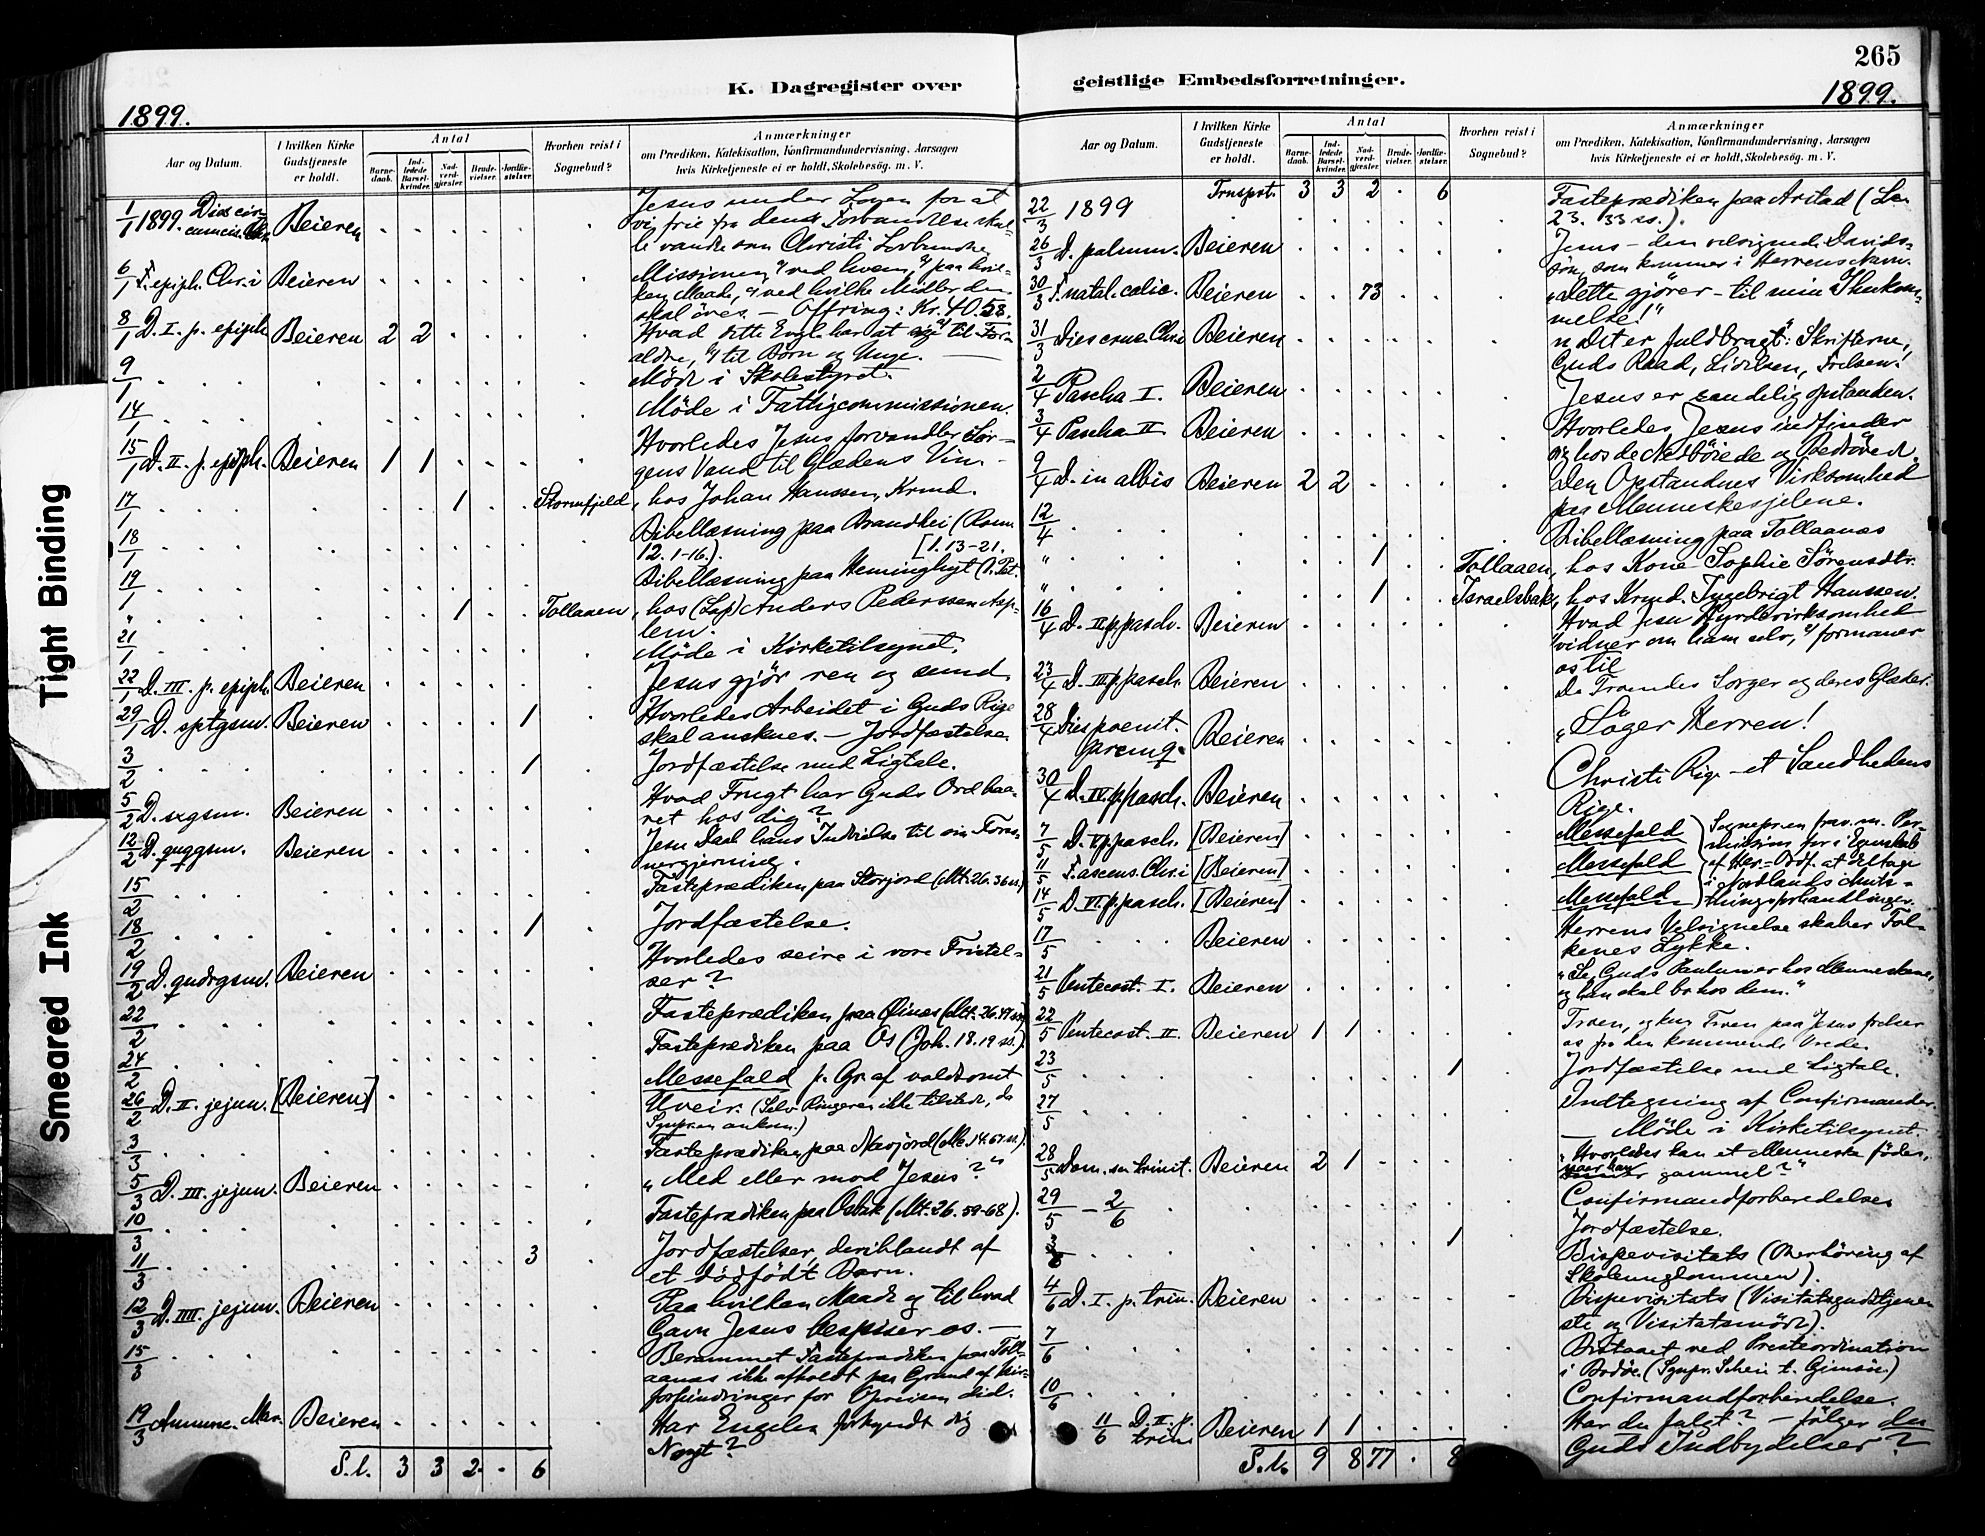 265
K. Dagregister over geistlige Embedsforretninger.
1899.
1899.
Aar og Datum.
I hvilken Kirke Gudstjeneste er holdt.
Antal
Barnedaab.
Indledede Barselkvinder.
Nadverdgjæster.
Brudevielser.
Jordfæstelser.
Hvorhen reist i Sognebud?
Anmærkninger
om Prædiken, Katekisation, Konfirmandundervisning, Aarsagen
hvis Kirketjeneste ei er holdt, Skolebesøg. m. V.
1/1 1899. Beieren Jesus under Loven for at
vi, frie fra dens Forbandelse skul-
le vandre som Christi
6/1 F. epiph. Chr.i Beieren Missionen, ved hvem, paa hvil-
ken Maade, ved hvilke Midler den
skal öves. — Offring: Kr. 40.58.
8/1 D. I. p. epiph. Beieren 2 2 Hvad dette Evgl. har at sige til For-
ældre, til Börn og Unge.
9/1 Möde i Skolestyret.
14/1 Möde i Fattigcommissionen.
15/1 D. II. p. epiph. Beieren 1 1 Hvorledes Jesus forvandler Sor-
gens Vand til Glædens Vin.
17/1 1 Stormfjeld, hos Johan Hanssen, Krmd.
18/1 Bibellæsning paa Brandhei (Rom.
12. 1-16.) [1. 13-21.
19/1 Bibellæsning paa Heminghyt (1. Pet.
" 1 Tollaaen, hos (Lap) Anders Pederssen
21/1 Möde i Kirketilsynet.
22/1 D. III. p. epiph. Beieren Jesus gjör ren og sund.
29/1 D. sptgsm. Beieren 1 Hvorledes Arbeidet i Guds Rige
skal ansknes. — Jordfæstelse.
3/2 1 Jordfæstelse med Ligtale.
5/2 D. sxgsm. Beieren Hvad Frugt har Guds Ord baa-
ret hos dig?
12/2 D. quqgsm. Beieren Jesu Daab hans Indvielse til sin
15/2 Fasteprædiken paa Storjord (Mt. 26. 36 ss.)
18/2 1 Jordfæstelse.
19/2 D. qudrgsm. Beieren Hvorledes seire i vore Fristel-
ser?
22/2 Fasteprædiken paa (Mt. 26. 47 ss.)
24/2 Fasteprædiken paa Os (Joh. 18. 19 ss.)
26/2 D. II. jejun. [Beieren] Messefald p. Gr. af voldsomt
Uveir. (Selv Ringeren ikke tilstede, da
Sgnpr.en ankom.)
3/3 Fasteprædiken paa Nævjord (Mc. 14. 67 ss.)
5/3 D. III. jejun. Beieren „Med eller mod Jesus?"
10/3 Fasteprædiken paa Osbak (Mt. 26. 59-68).
11/3 3 Jordfæstelser, deriblandt af
et dödfödt Barn.
12/3 D. IIII. jejun. Beieren Paa hvilken Maade og til hvad
Gavn Jesus bespiser os. —
15/3 Berammet Fasteprædiken paa Toll-
aanæs ikke afholdt paa Grund af
forhindringer for Opreisen did.
19/3 Annunc. Mar. Beieren Har Engelen forkyndt dig
Noget?
S. l. 3 3 2 . 6
Aar og Datum.
I hvilken Kirke Gudstjeneste er holdt.
Antal
Barnedaab.
Indledede Barselkvinder.
Nadverdgjæster.
Brudevielser.
Jordfæstelser.
Hvorhen reist i Sognebud?
Anmærkninger
om Prædiken, Katekisation, Konfirmandundervisning, Aarsagen
hvis Kirketjeneste ei er holdt, Skolebesög. m. V.
Trnsport. 3 3 2 . 6
22/3 1899 Fasteprædiken paa Arstad (Lc.
23. 33 ss.).
26/3 D. palmar. Beieren Jesus — den velsignede Davids-
sön, som kommer i Herrens Navn.
30/3 F. natal. calic. Beieren 73 „Dette gjører — til min Ihukom-
melse!"
31/3 Dies cruc. Chr.i Beieren „Det er fuldbragt": Skrifterne,
Guds Raad, Lidelsen, Frelsen.
2/4 Pascha I. Beieren Jesus er sandelig opstanden.
3/4 Pascha II Beieren Hvorledes Jesus indfinder
sig hos de Nedböiede og Bedrövede.
9/4 D. in albis Beieren 2 2 Den Opstandnes Virksomhed
paa Menneskesjelene.
12/4 Bibellæsning paa Tollaanæs
" 1 Tollaaen, hos Kone Sophie Sörensdtr.
" 1 Israelsbak, hos Krmd. Ingebrigt Hanssen.
16/4 D. II p. pasch. Beieren Hvad Jesu Hyrdevirksomhed
vidner om ham selv, formaner
os til
23/4 D. III p. pasch. Beieren De Troendes Sorger og deres Glæder.
28/4 Dies poenit. Beieren „Söger Herren!
30/4 D. IV. p. pasch. Beieren Christi Rige — et Sandhedens
Rige.
7/5 D. V p. pasch. [Beieren] Messefald
11/5 F. ascens. Chr.i [Beieren] Messefald
14/5 D. VI. p. pasch. [Beieren] Messefald
Sognepr.en frav. m. Per-
mission for i Egenskab
af Her.-Ordf. at deltage
i Nordlands Amts-
thingsforhandlinger.
17/5 Beieren Herrens Velsignelse skaber Fol-
kenes Lykke.
21/5 Pentecost. I. Beieren „Se, Guds Paulun er hos Menneskene,
og han skal bo hos dem."
22/5 Pentecost. II. Beieren 1 1 Troen, og kun Troen paa Jesus frelser
os fra den kommende Vrede.
23/5 1 Jordfæstelse med Ligtale.
27/5 Indtegning af Confirmander.
— Möde i Kirketilsynet.
28/5 Dom. ss. trinit. Beieren 2 1 „Hvorledes kan et Menneske födes,
naar han er gammel?"
29/5 — 2/6 Confirmandforberedelse.
3/6 1 Jordfæstelse.
Bispevisitats (Overhöring af
Skoleungdommen).
4/6 D. I. p. trin. Beieren Bispevisitats (Visitatsgudstjene-
ste og Visitatsmöde).
7/6 Bistaaet ved Presteordination
i Bodöe. (Sgnpr. Schei t. Gimsöe.)
10/6 Confirmandforberedelse.
11/6 D. II. p. trin. Beieren 1 1 Har du fulgt? — fölger du
Guds Indbydelser?
S. l. 9 8 77 . 8
Tight Binding
Smeared Ink